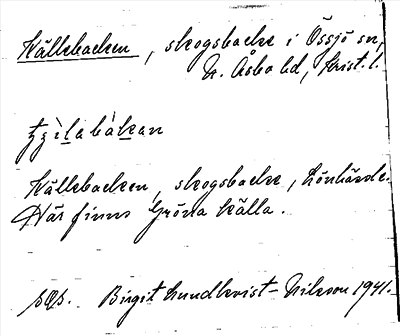 Källebacken, skogsbacke i Össjö sn,
N. Åsbo hd, Krist. l.
Källebacken, skogsbacke, Lönhärde.
Här finns Gröna källa.
Birgit Lundkvist-Nilsson 1941.